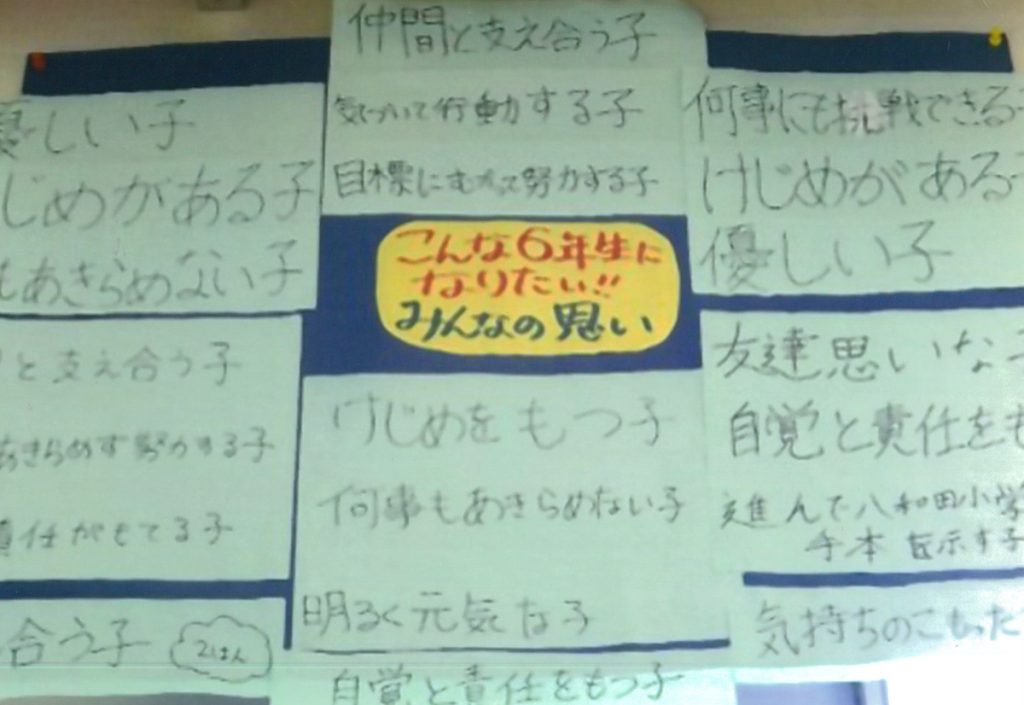 仲間と支え合う子
気づいて行動する子
目標にむかって努力する子
優しい子
じめがある子
もあきらめない子
と支え合う子
あきらめず努力する子
責任がもてる子
合う子
2はん
こんな6年生に
なりたい!!
みんなの思い
けじめをもつ子
何事もあきらめない子
明るく元気な子
自覚と責任をもつ子
何事にも挑戦できる子
けじめがある子
優しい子
友達思いな子
自覚と責任をも
進んで八和田小学
手本を示す子
気持ちのこもった